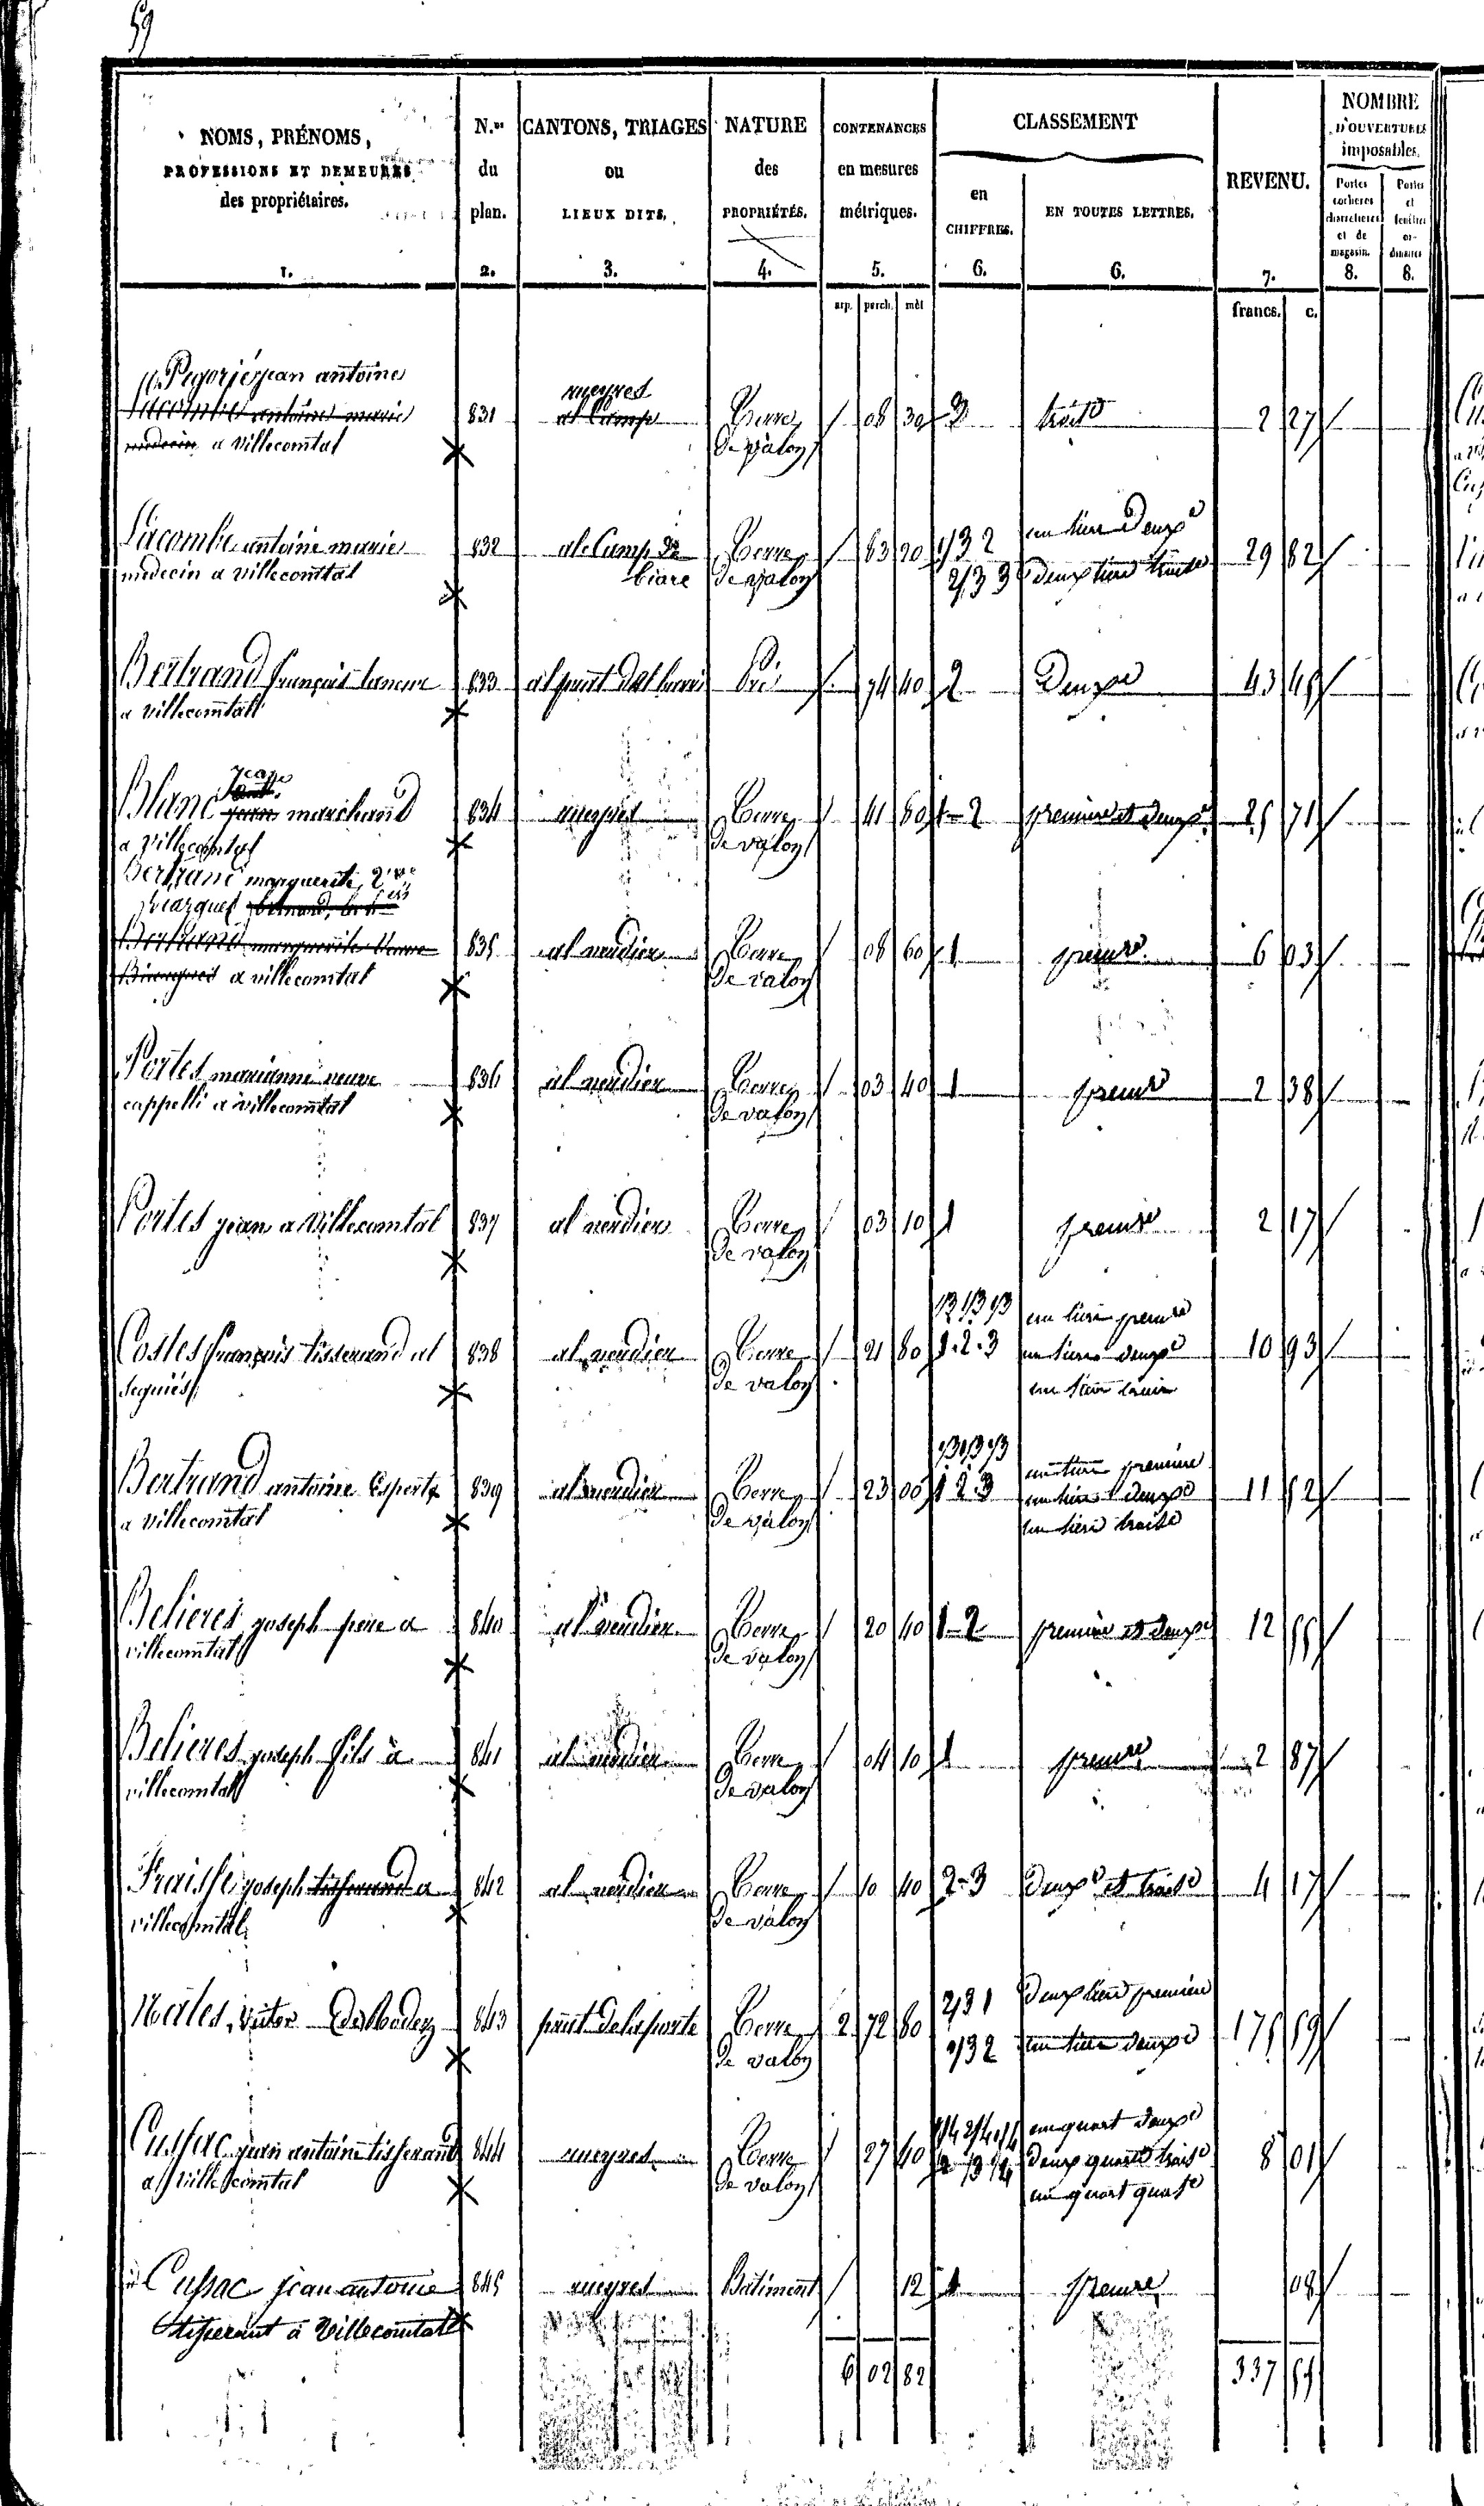 59
NOMS, PRÉNOMS,
PROFESSIONS ET DEMEURES
des propriétaires.
1.
N.os
du
plan.
2.
CANTONS, TRIAGES
ou
LIEUX DITS.
3.
NATURE
des
PROPRIÉTÉS.
4.
CONTENANCES
en mesures
métriques.
5.
CLASSEMENT
en
CHIFFRES.
6.
EN TOUTES LETTRES.
6.
REVENU.
7.
NOMBRE
D'OUVERTURES
imposables.
Portes
cochères
charretières
et de
magasin.
8.
Portes
et
fenêtres
or-
dinaires
8.
arp. perch. mèt
francs. c.
jean antoine
antoine marie
medecin a villecomtal
831 rueyres
al Camp
Terre de valon 08 30 3 trois.e 2 27
Lacombe antoine marie
medecin a villecomtal
832 al Camp de
Terre de valon 63 20 1/3 2 un tiers Deux.e
2/3 3 Deux tiers trois.e 29 82
Bertrand françois
a villecomtal
833 Pré 74 40 2 Deux.e 43 45
Blanc jean marchand
a villecomtal
834 rueyres Terre de valon 41 60 1-2 premiere et deux.e 25 71
Bertrand marguerite, v.ve
Bertrand marguerite Veuve
a villecomtal
835 al verdier Terre de valon 08 60 1 prem.re 6 03
Portes marianne veuve
cappelli a villecomtal
836 al verdier Terre de valon 03 40 1 prem.re 2 38
Portes jean a villecomtal
837 al verdier Terre de valon 03 10 1 prem.re 2 17
Costes françois tisserand al
838 al verdier Terre de valon 21 80 1/3 1/3 1/3
1.2.3
un tiers prem.re
un tiers deux.e
un tiers trois.e
10 93
Bertrand antoine Expert
a villecomtal
839 al verdier Terre de valon 23 00 1/3 1/3 1/3
1 2 3
un tiers premiere
un tiers deux.e
un tiers trois.e
11 52
Belieres joseph pere a
villecomtal
840 al verdier Terre de valon 20 40 1-2 premiere et deux.e 12 55
Belieres joseph fils à
villecomtal
841 al verdier Terre de valon 04 10 1 prem.re 2 87
Fraisse joseph tisserand a
villecomtal
842 al verdier Terre de valon 10 40 2-3 Deux.e et trois.e 4 17
843 Terre de valon 2 72 80 2/3 1 Deux tiers premiere
1/3 2 un tiers deux.e 175 59
Cussac jean antoine tisserand
a villecomtal
844 rueyres Terre de valon 27 40 1/4 2/4 1/4
2 3 4
un quart deux.e
Deux quarts trois.e
un quart quat.e
8 01
Cussac jean antoine
tisserant à Villecomtal
845 rueyres Batiment 12 1 prem.re 08
6 02 82 337 55